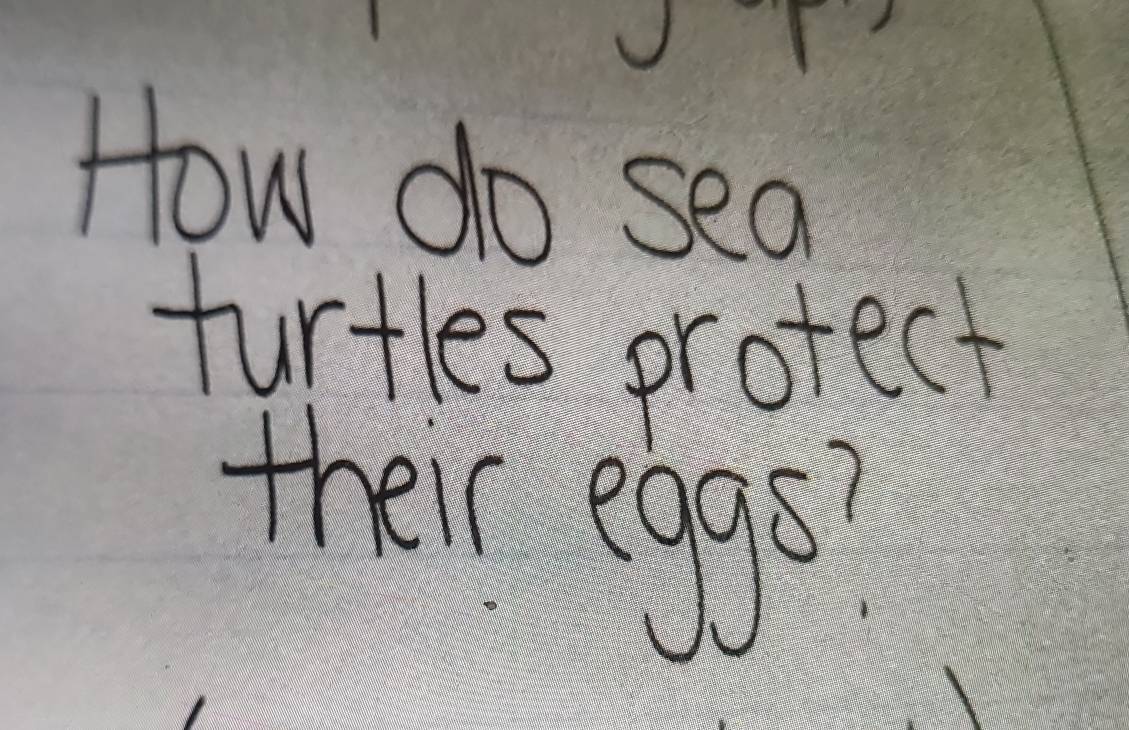 How do sea
turtles protect
their eggs?